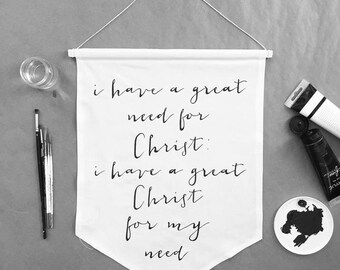 i have a great
need for
Christ:
i have a great
Christ
for my
need